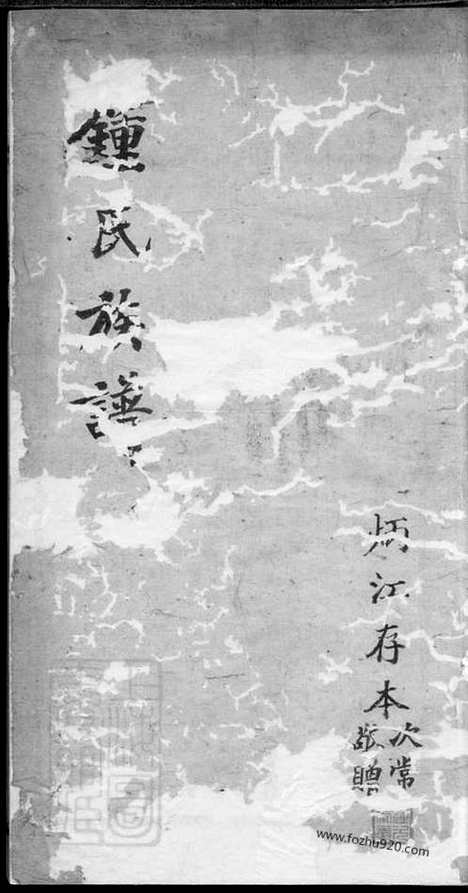 鍾氏族譜
炳江存本
次常
敬贈
www.fozhu920.com